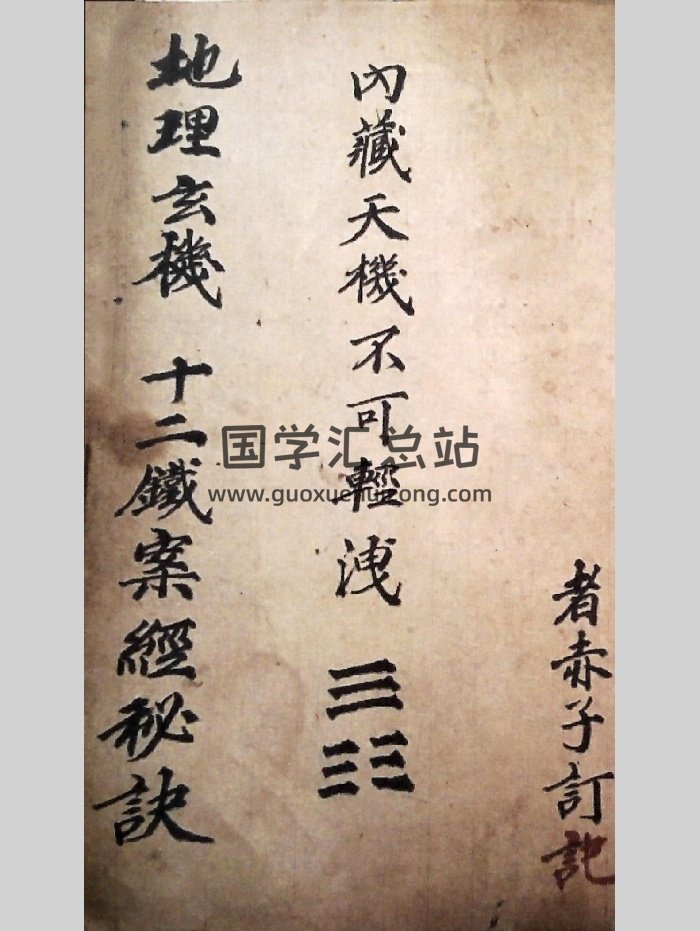 者赤子訂記
內藏天機不可輕洩 ☰☷
地理玄機 十二鐵案經秘訣
国学汇总站
www.guoxuehuizong.com